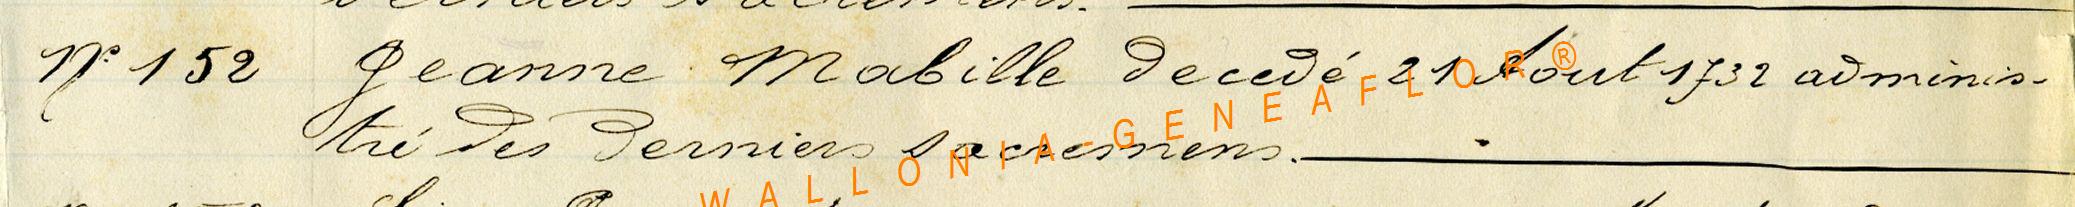 derniers sacremens.
N° 152 Jeanne Mabille decedé 21 Aout 1732 adminis-
tré des derniers sacremens.
WALLONIA-GENEAFLOR®